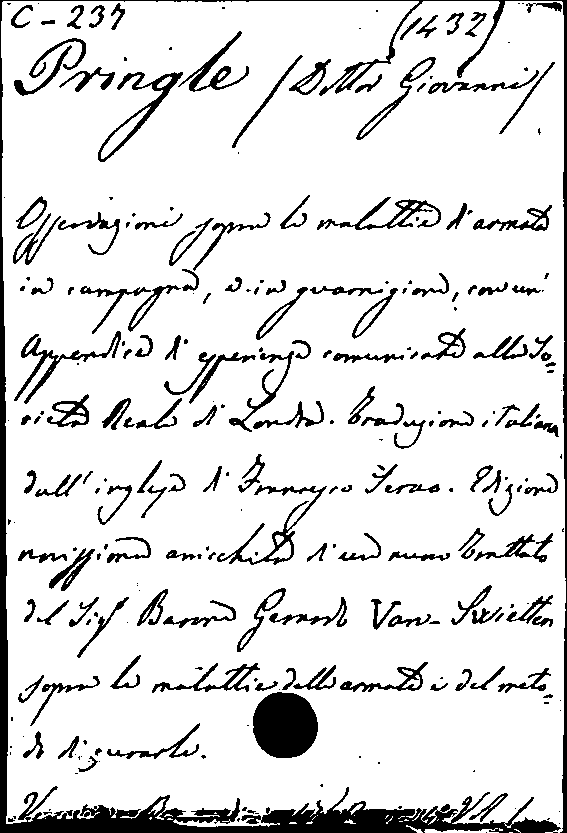 C - 237 (1432)
Pringle (Dottor Giovanni)
Osservazioni sopra le malattie d'armata
in campagna, e in guarnigione, con un'
Appendice di esperienze comunicate alla So=
cietà Reale di Londra. Traduzione italiana
dall'inglese di Francesco Serao. Edizione
novissima arricchita d'un nuovo Trattato
del Sig.r Barone Gerardo Van-Swietten
sopra le malattie delle armate e del meto=
do di curarle.